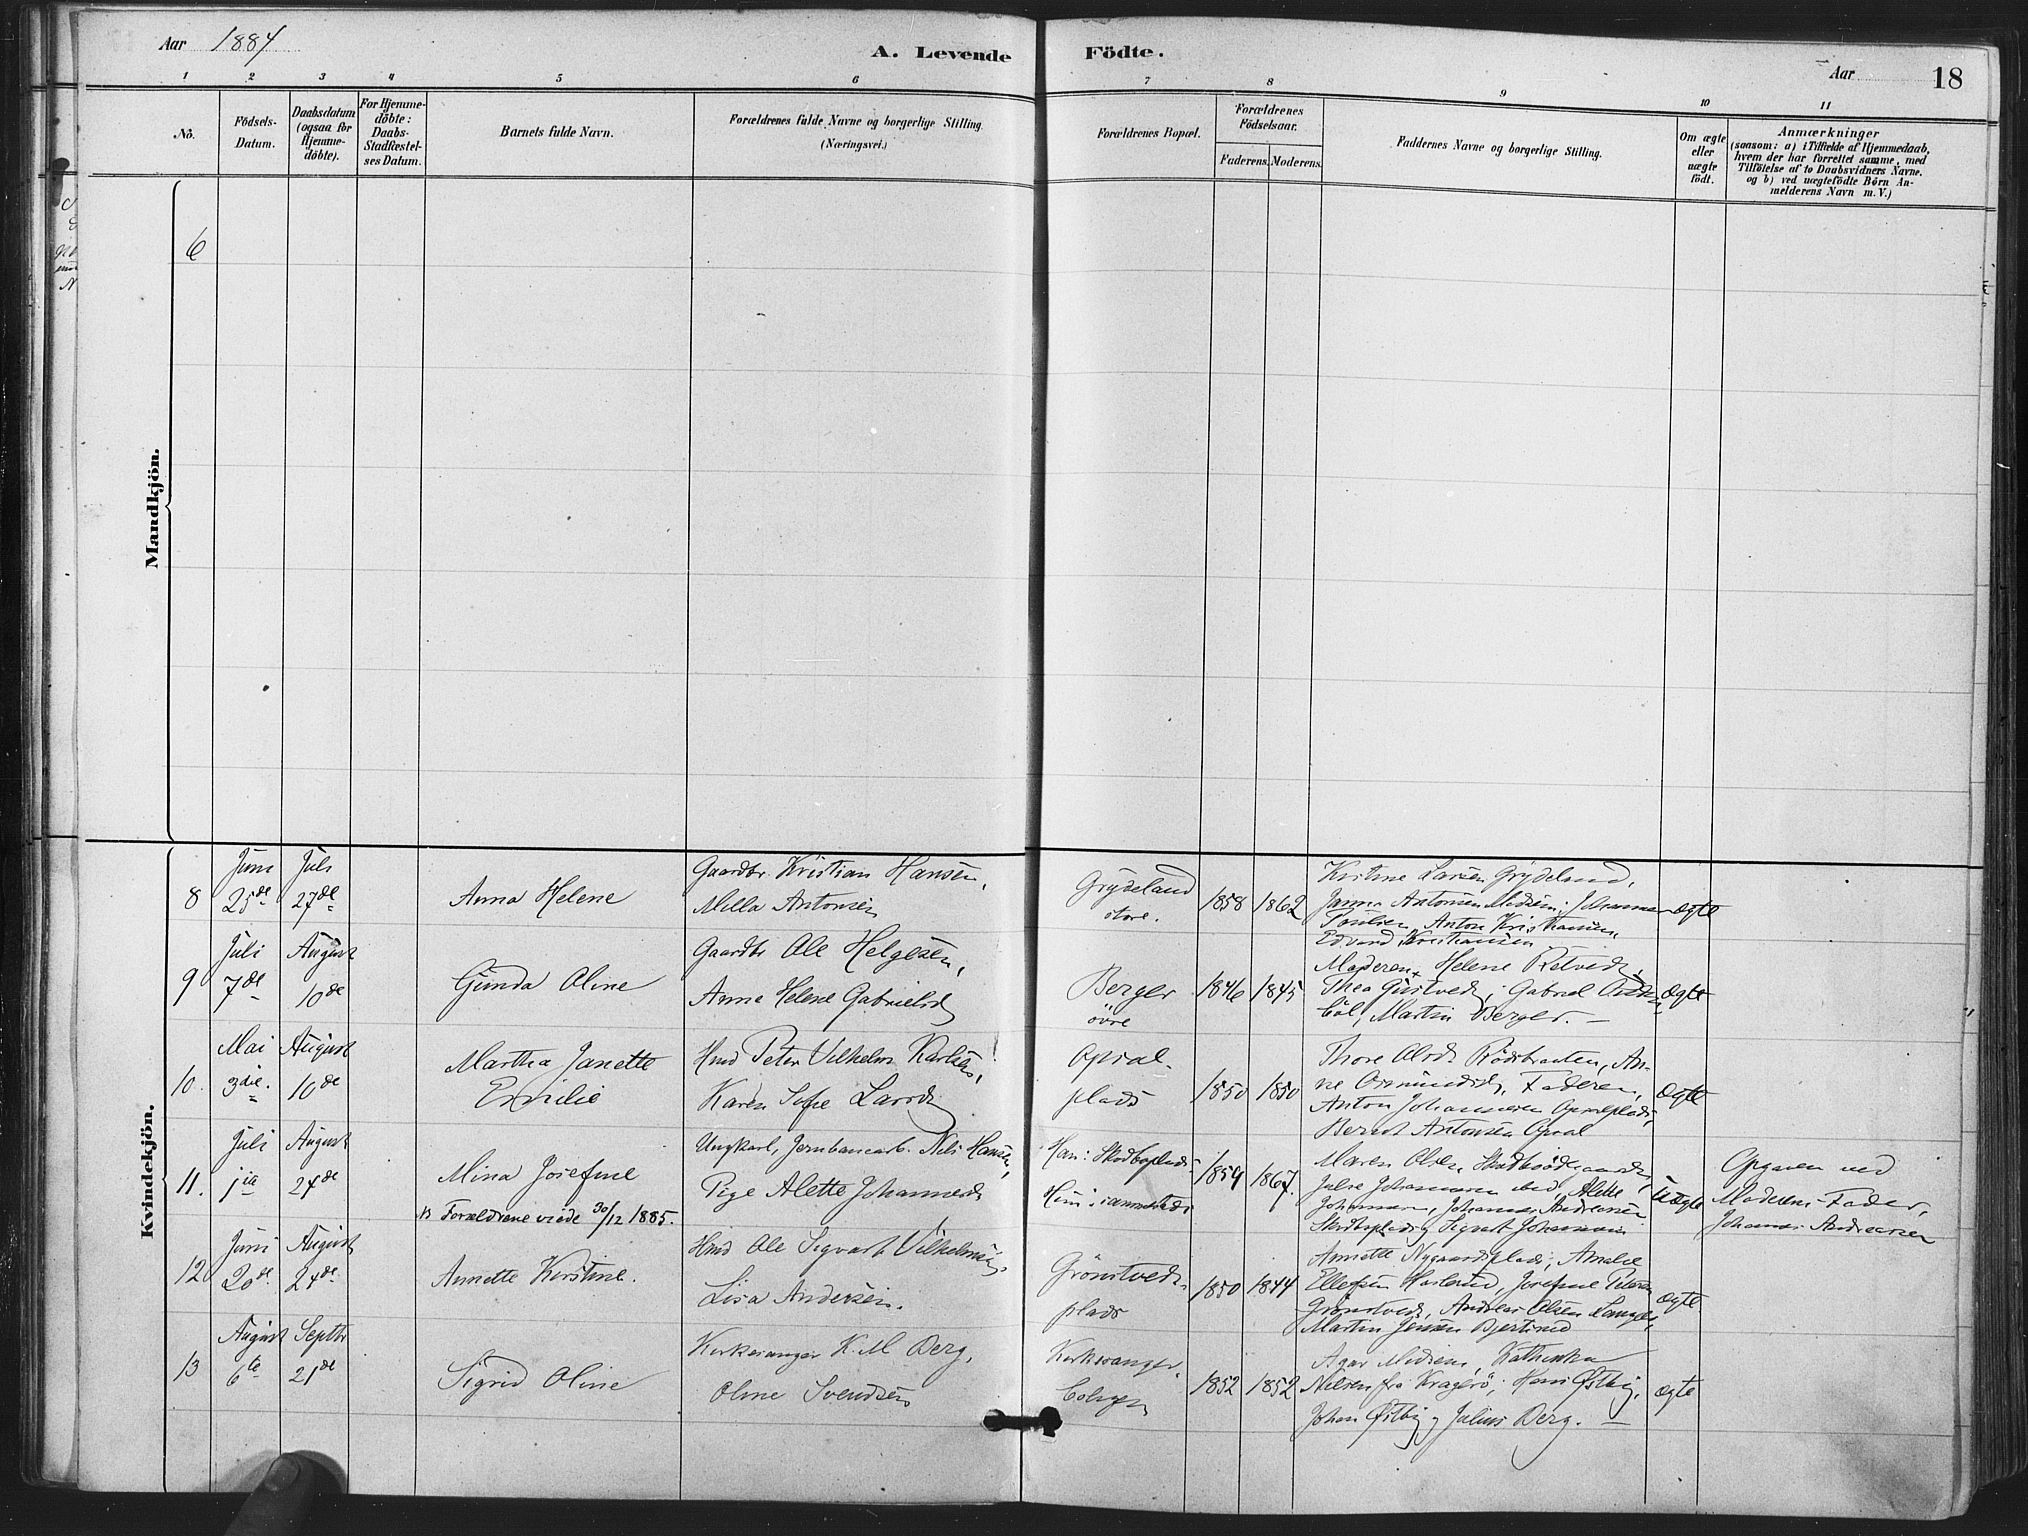 Aar 1884 A. Levende Födte. Aar 18
1 2 3 4 5 6 7 8 9 10 11
No.
Födsels-
Datum.
Daabsdatum
(ogsaa for
Hjemme-
döbte).
For Hjemme-
döbte:
Daabs-
Stadfæstel-
ses Datum.
Barnets fulde Navn.
Forældrenes fulde Navne og borgerlige Stilling
(Næringsvei.)
Forældrenes Bopæl.
Forældrenes
Födselsaar.
Faderens. Moderens.
Faddernes Navne og borgerlige Stilling.
Om ægte
eller
uægte
födt.
Anmærkninger
(saasom: a) i Tilfælde af Hjemmedaab,
hvem der har forrettet samme, med
Tilföielse af to Daabsvidners Navne.
og b) ved uægtefödte Börn An-
melderens Navn m. V.)
Mandkjön.
6
Kvindekjön.
8
Juni
25de
Juli
27de
Anna Helene
Gaardbr. Kristian Hansen,
Milla Antonsen
Grydeland
store.
1858 1862
Kirstine Larsen Grydeland,
Antonsen
Poulsen, Anton Kristiansen
Edvard Kristiansen
ægte
9
Juli
7de
August
10de
Gunda Oline
Gaardbr Ole Helgesen,
Anne Helene Gabrielsd
Berger
övre
1846 1845
Moderen, Helene Retvedt,
Thea Gustved, Gabriel
Martin Berger. —
ægte
10.
Mai
3die.
August
10de
Martha Janette
Emilie
Hmd Peter Vilhelm Karlsen,
Karen Sofie Larsd
Opsal-
plads
1850 1850
Thore Olsd. Rödsbraaten, An-
ne Osmundsd, Faderen,
Anton Johannesen Opsalplads,
Bernt Antonsen Opsal
ægte
11.
Juli
1ste
August
24de
Mina Josefine
NB Forældrene viede 30/12 1885.
Ungkarl, Jernbanearb. Nils Hansen,
Pige Alette Johannesd
Han: Skodboplads
Hun: sammesteds
1859 1867.
Maren Olsen
Julie Johannesen Alette
Johannesen, Johannes Andreasen
Skodboplads, Sigvart Johannesen
Uægte
Opgaven ved
Moderens Fader,
Johannes Andreasen
12
Juni
20de
August
24de
Annette Kirstine.
Hmd Ole Sigvart Vilhelmsen,
Lisa Andersen.
Grönstvedt-
plads
1850 1844
Annette Nygaardsplads, Amalie
Ellefsen Haslund, Josefine Petersen
Grönstvedt, Andreas Olsen
Martin Jensen Bjertuved
ægte
13
August
6te
Septbr
21de
Sigrid Oline
Kirkesanger K. M Berg,
Oline Svendsen
Kirkesanger-
boligen
1852 1852
Kathinka
Nilsen fra Kragerö, Hans Østby,
Johan Østby og Julius Berg. —
ægte